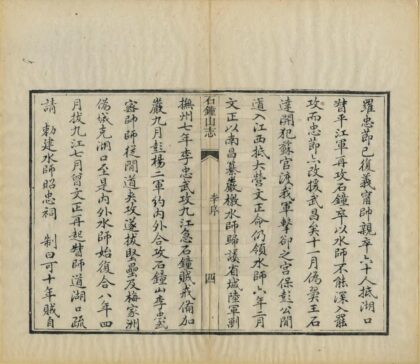 羅忠節已復義甯師親率六十人抵湖口
督平江軍再攻石鐘卒以水師不能深入罷
攻而忠節亦改援武昌矣十一月偽翼王石
達開犯蘇官渡義軍擊卻之宮保彭公間
道入江西抵大營文正命仍領水師六年二月
文正以南昌棊嚴檄水師歸護省城陸軍剿
石鐘山志
李序
四
撫州七年李忠武攻九江急石鐘賊戒備加
嚴九月彭楊二軍約內外合攻石鐘山李忠武
密師師從間道夾攻遂拔堅壘及梅家洲
偽城克湖口至是內外水師始復合八年四
月拔九江七月曾文正再起督師道湖口疏
請 勅建水師昭忠祠 制曰可十年賊自